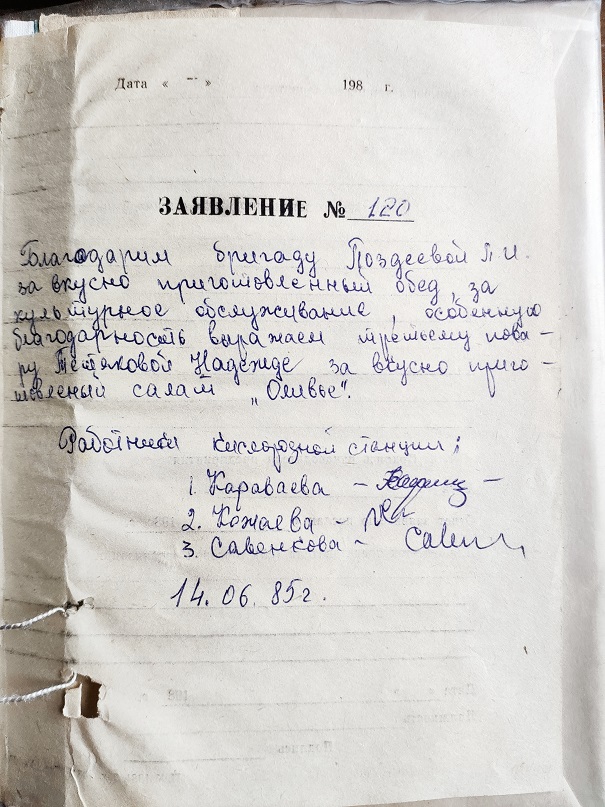 Дата « » 198 г.
ЗАЯВЛЕНИЕ № 120
Благодарим бригаду Поздеевой Л.И.
за вкусно приготовленный обед, за
культурное обслуживание, особенную
благодарность выражаем третьему пова-
ру Тетяковой Надежде за вкусно приго-
товленый салат „Оливье".
Работники кислородной станции:
1. Караваева –
2. Кожаева –
3. Савенкова –
14. 06. 85г.